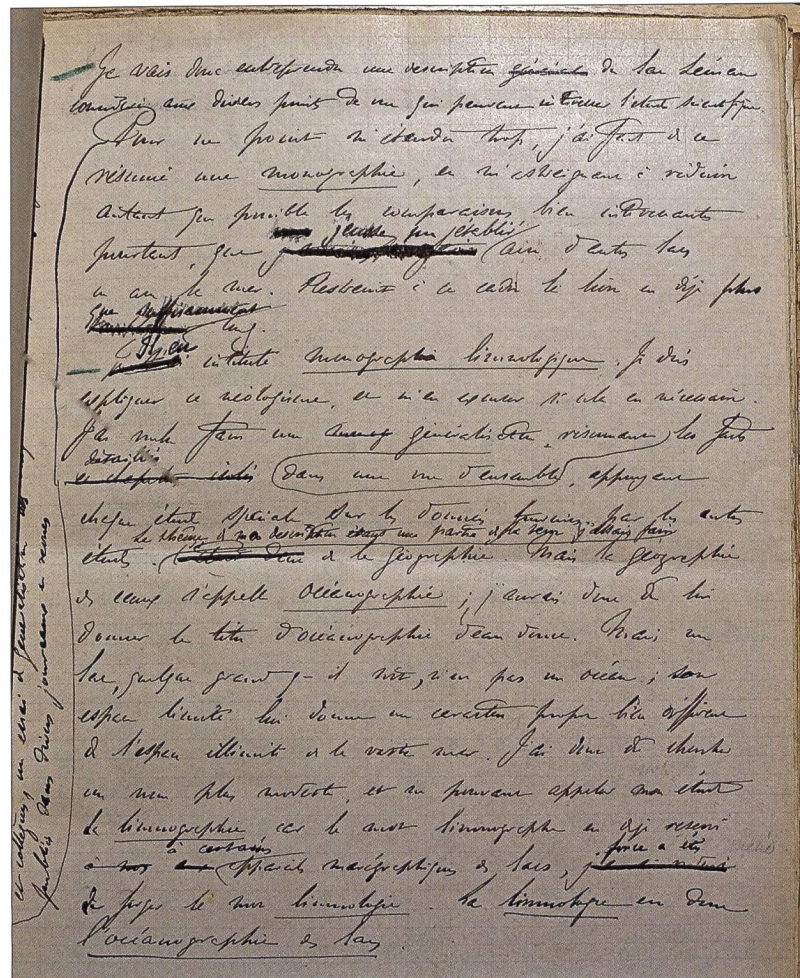 Je vais donc entreprendre une description générale du lac Léman
considéré aux divers points de vue qui peuvent intéresser l'étude scientifique.
Pour ne point m'étendre trop, j'ai fait de ce
résumé une monographie, en m'astreignant à réduire
autant que possible les comparaisons, bien intéressantes
jeusse pu établir
pourtant, que avec d'autres lacs
ou avec la mer. Restreint à ce cadre le livre est déjà plus
que suffisamment
long.
intitulé monographie limnologique. Je dois
expliquer ce néologisme, et m'en excuser si cela est nécessaire.
J'ai voulu faire une généralisation, résumant les faits
détaillés
dans une vue d'ensemble, appuyant
chaque étude spéciale sur les données fournies par les autres
le thème de ma description étant une partie de la terre, j'allais faire
études. de la géographie. Mais la géographie
des eaux s'appelle océanographie ; j'aurais donc dû lui
donner le titre d'océanographie d'eau douce. Mais un
lac, quelque grand qu'il soit, n'est pas un océan ; son
espace limité lui donne un caractère propre bien différent
de l'espace illimité de la vaste mer. J'ai donc dû chercher
un nom plus modeste, et ne pouvant appeler mon étude
la limnographie car le mot limnographe est déjà réservé
à certains force a été
à nos appareils marégraphiques des lacs, j
de forger le mot limnologie La limnologie est donc
l'océanographie des lacs.
un essai de généralisation
publiés dans divers journaux et revues